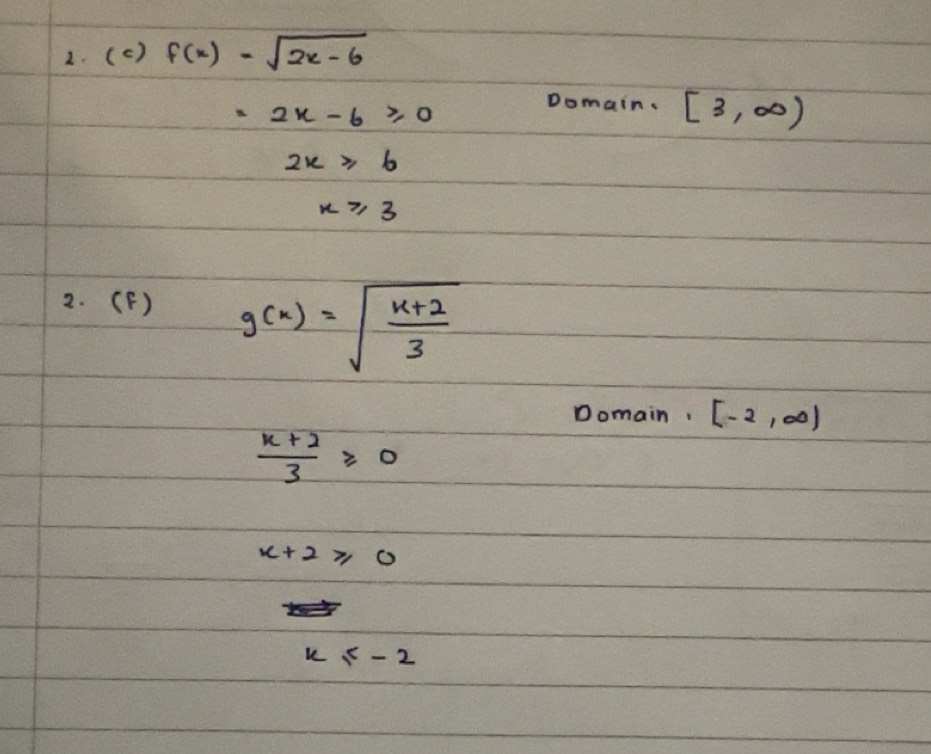 2. (c) f(x) = √2x - 6
= 2x - 6 ⩾ 0 Domain. [3, ∞)
2x ⩾ 6
x ⩾ 3
2. (f) g(x) = √(x+2)/3
Domain. [-2, ∞)
(x+2)/3 ⩾ 0
x+2 ⩾ 0
x ⩽ -2